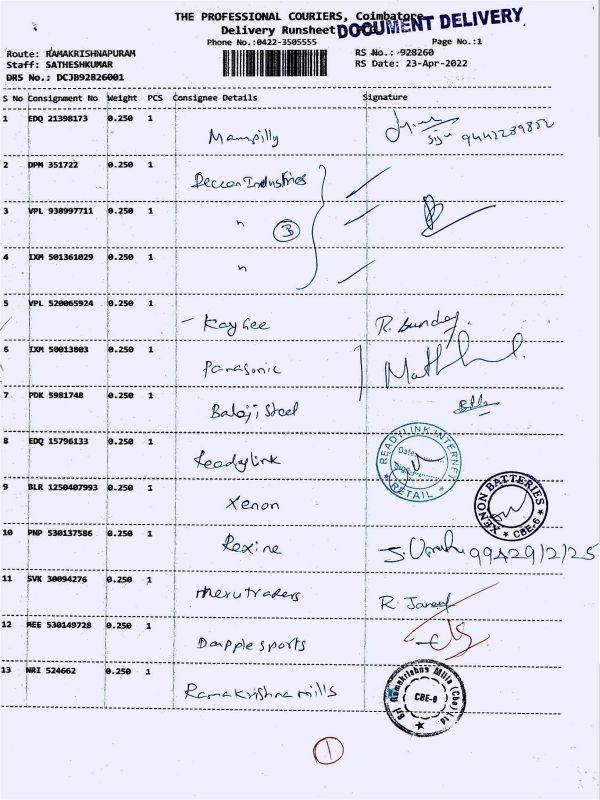 THE PROFESSIONAL COURIERS, Coimbatore
DOCUMENT DELIVERY
Delivery Runsheet
Phone No.:0422-3505555
Page No.:1
Route: RAMAKRISHNAPURAM
RS No.: 928260
Staff: SATHESHKUMAR
RS Date: 23-Apr-2022
DRS No.: DCJB92826001
S No Consignment No Weight PCS Consignee Details Signature
1 EDQ 21398173 0.250 1 Mampilly
2 DPM 351722 0.250 1 Deccan Industries
3 VPL 938997711 0.250 1 " 3
4 IXM 501361029 0.250 1 "
5 VPL 520065924 0.250 1 - Kay Gee
6 IXM 50013803 0.250 1 Panasonic
7 PDK 5981748 0.250 1 Balaji Steel
8 EDQ 15796133 0.250 1 Readylink
READYLINK INTERNET
Date
RETAIL
9 BLR 1250407993 0.250 1 Xenon
XENON BATTERIES
CBE-6
10 PNP 530137586 0.250 1 Rexine
11 SVK 30094276 0.250 1 Meru traders
12 MEE 530149728 0.250 1 Dapple sports
13 NRI 524662 0.250 1 Ramakrishna mills
Sri Ramakrishna Mills (Cbe) Ltd.
CBE-6
1